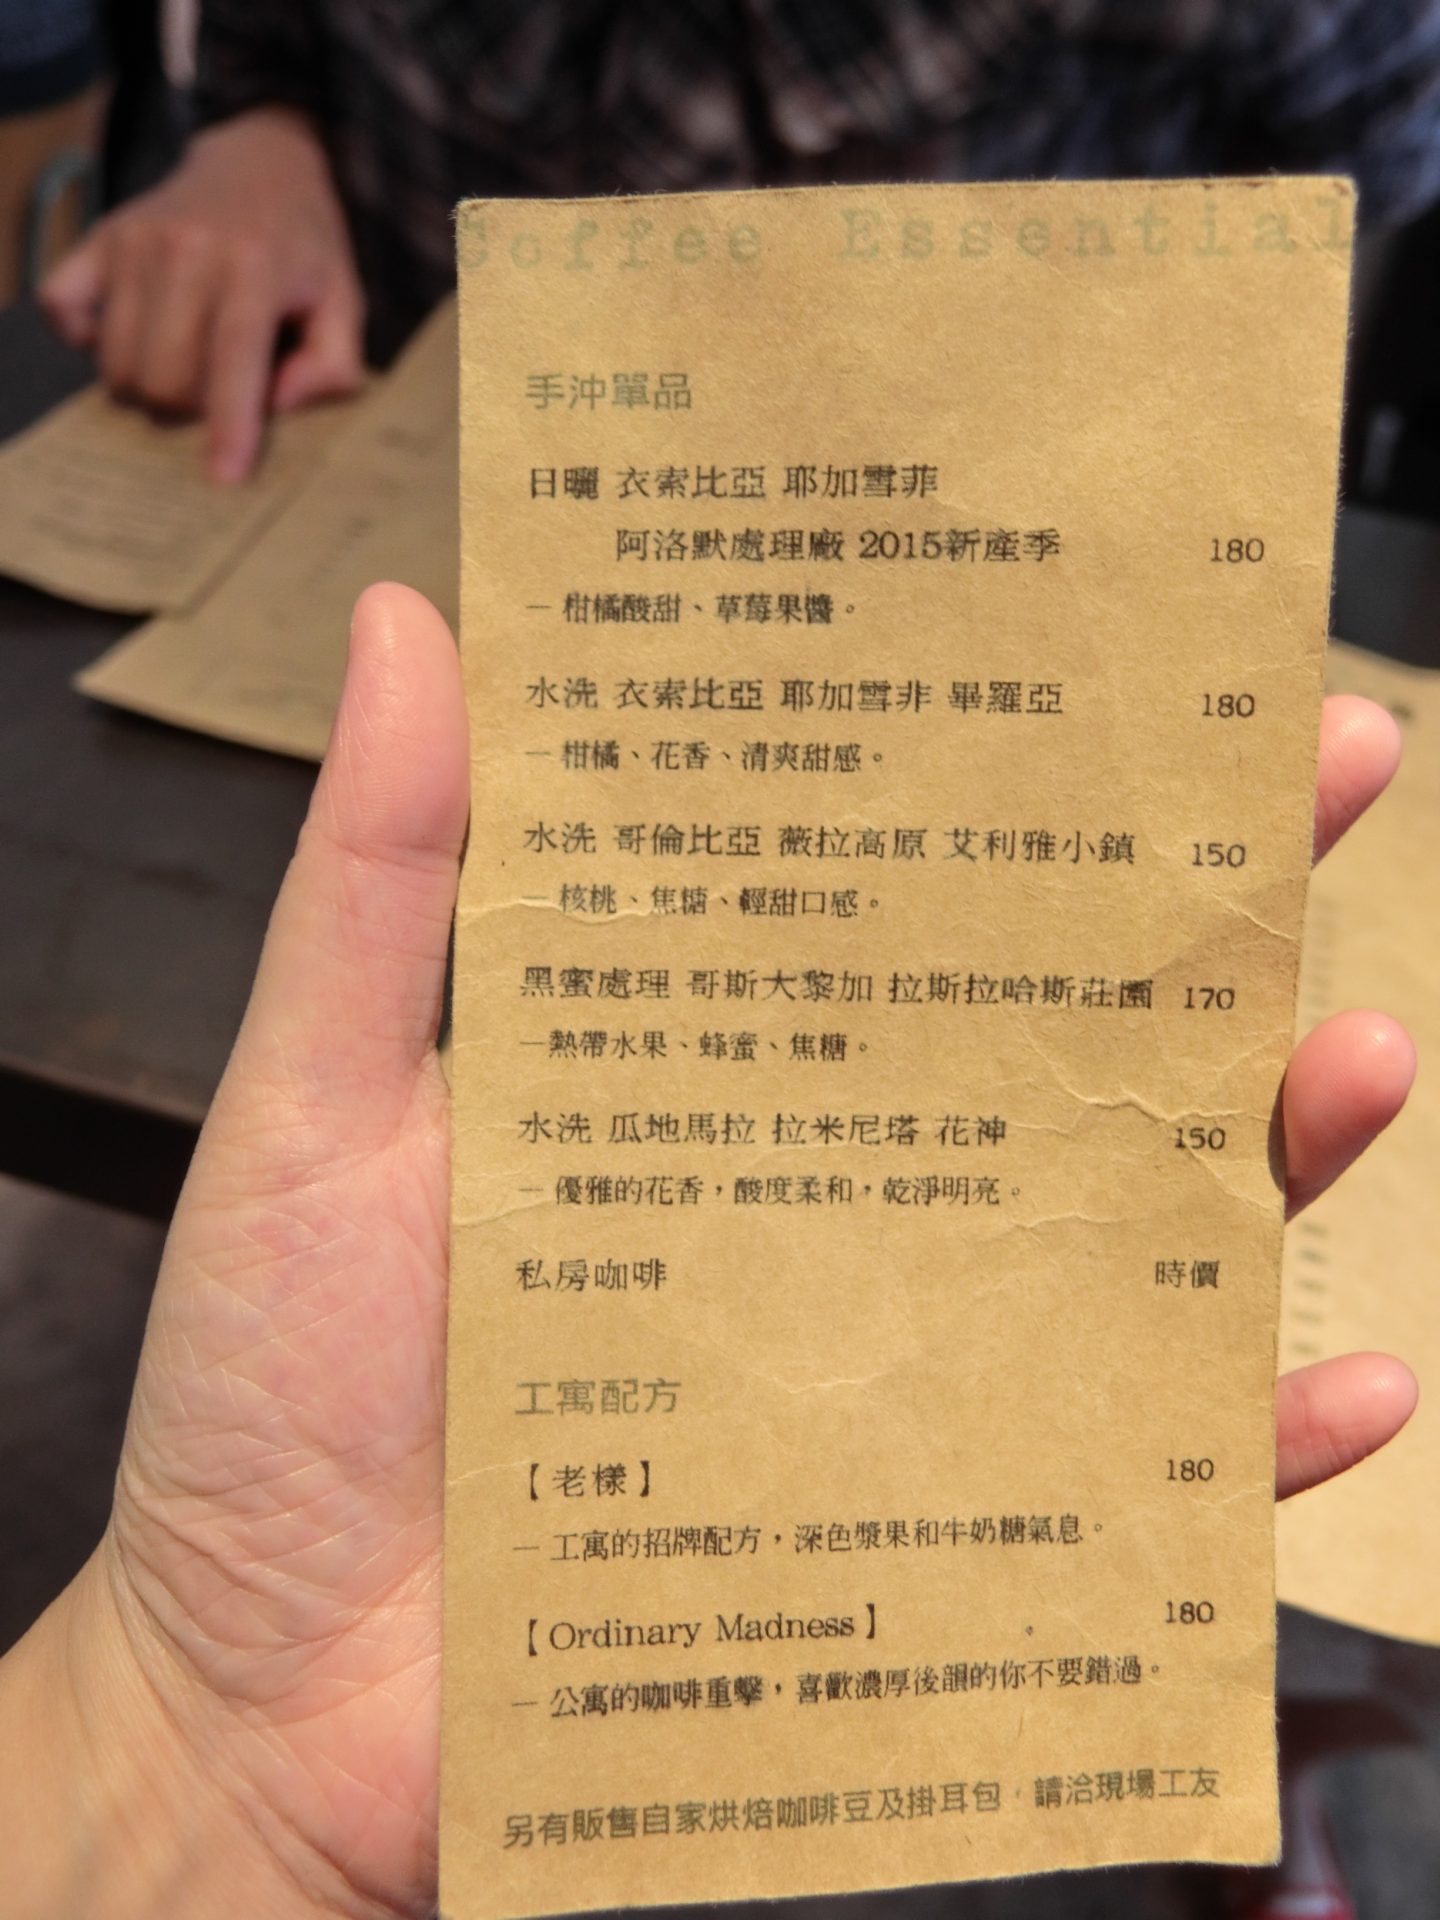 Coffee Essential
手沖單品
日曬 衣索比亞 耶加雪菲
阿洛默處理廠 2015新產季 180
— 柑橘酸甜、草莓果醬。
水洗 衣索比亞 耶加雪非 畢羅亞 180
— 柑橘、花香、清爽甜感。
水洗 哥倫比亞 薇拉高原 艾利雅小鎮 150
— 核桃、焦糖、輕甜口感。
黑蜜處理 哥斯大黎加 拉斯拉哈斯莊園 170
—熱帶水果、蜂蜜、焦糖。
水洗 瓜地馬拉 拉米尼塔 花神 150
— 優雅的花香，酸度柔和，乾淨明亮。
私房咖啡 時價
工寓配方
【老樣】 180
— 工寓的招牌配方，深色漿果和牛奶糖氣息。
【Ordinary Madness】 180
— 公寓的咖啡重擊，喜歡濃厚後韻的你不要錯過。
另有販售自家烘焙咖啡豆及掛耳包，請洽現場工友